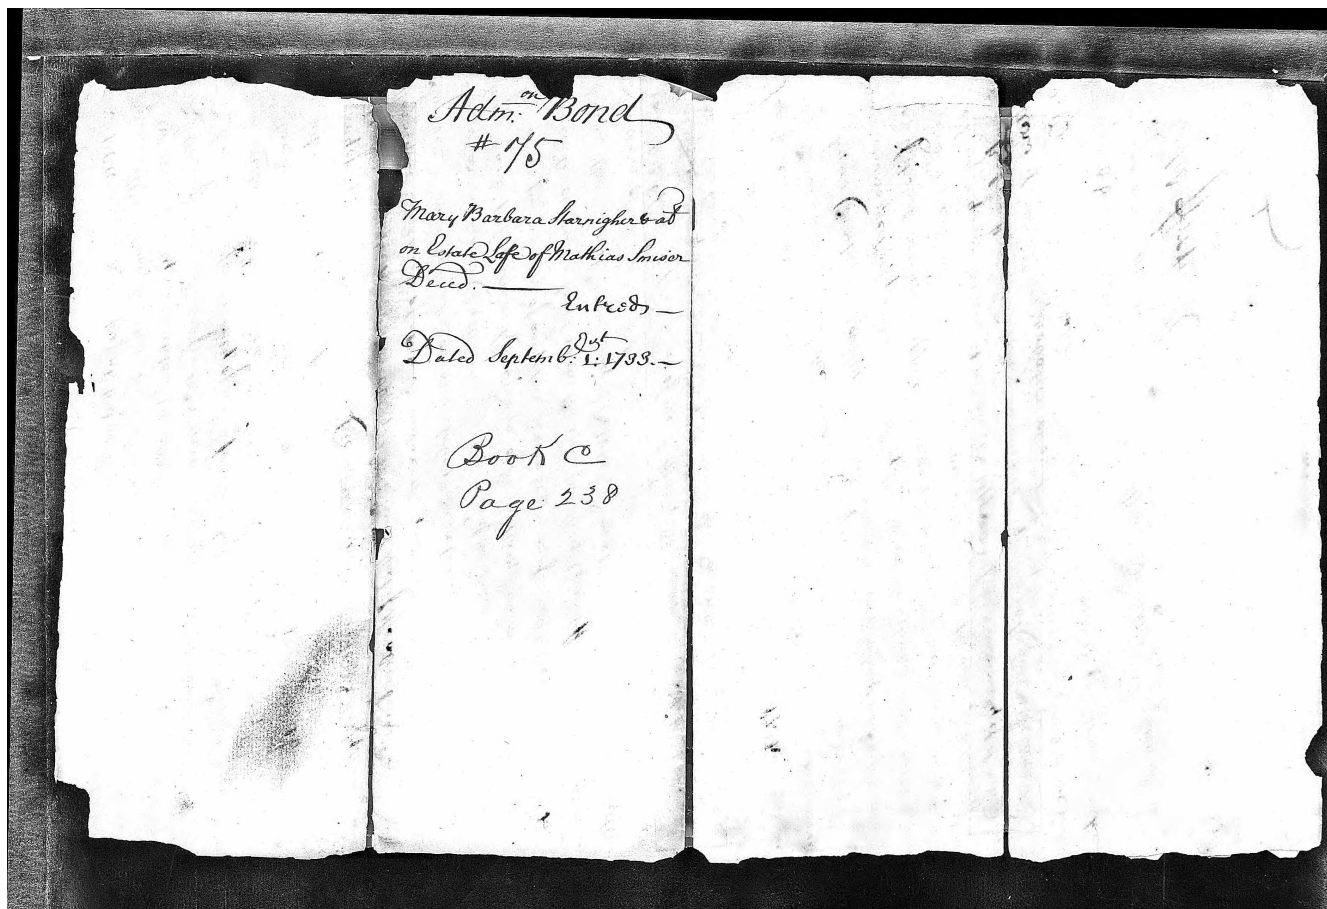 Adm:on Bond
# 75
Mary Barbara Starnigher & al
on Estate Late of Mathias Smiser
Deced. —
Entred —
Dated Septemb: 1: 1793. —
Book C
Page 238